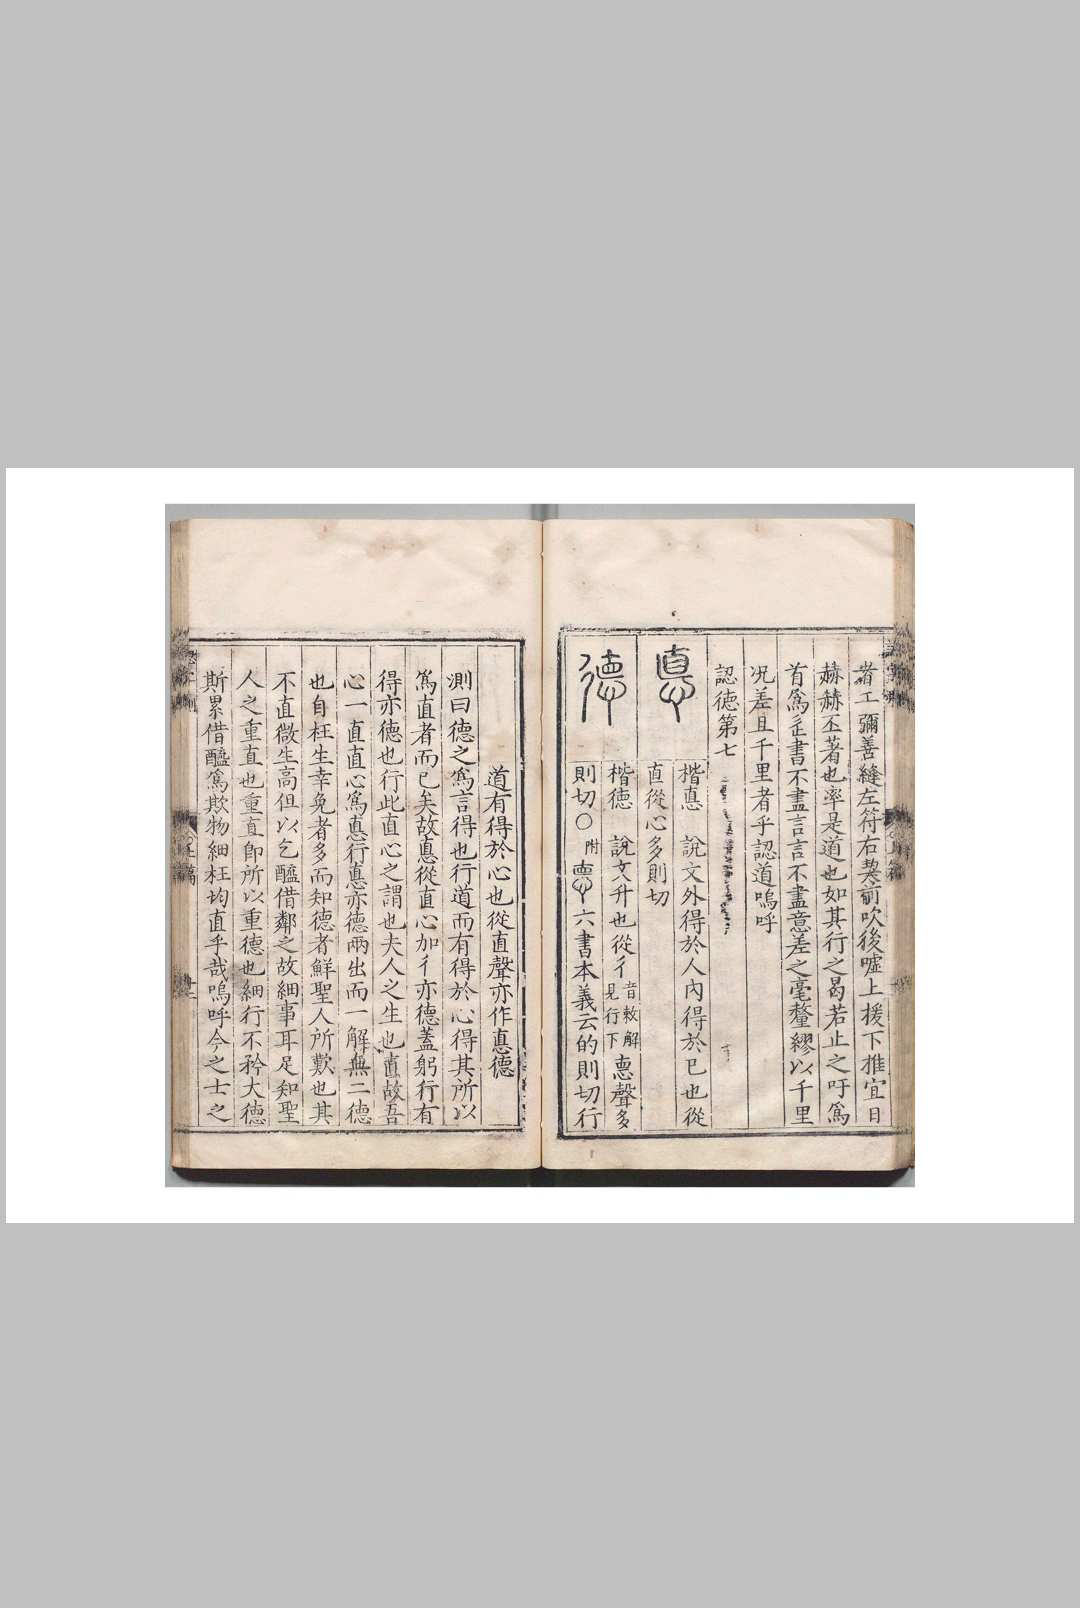 者工彌善縫左符右契前吹後噓上援下推宜日
赫赫丕著也率是道也如其行之曷若止之吁爲
首爲辵書不盡言言不盡意差之毫釐繆以千里
况差且千里者乎認道嗚呼
認德第七
悳
楷悳　說文外得於人內得於已也從
直從心多則切
德
楷德　說文升也從彳音敕解見行下悳聲多
則切○附悳六書本義云的則切行
道有得於心也從直聲亦作悳德
測曰德之爲言得也行道而有得於心得其所以
爲直者而已矣故悳從直心加彳亦德蓋躬行有
得亦德也行此直心之謂也夫人之生也直故吾
心一直直心爲悳行悳亦德兩出而一解無二德
也自枉生幸免者多而知德者鮮聖人所歎也其
不直微生高但以乞醯借鄰之故細事耳足知聖
人之重直也重直卽所以重德也細行不矜大德
斯累借醯爲欺物細枉均直乎哉嗚呼今之士之